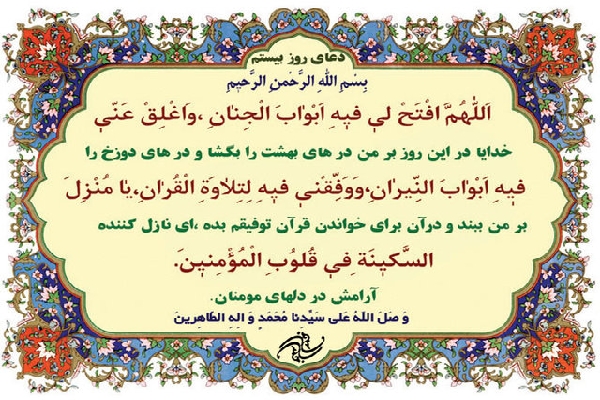 دعای روز بیستم
بِسْمِ اللهِ الرَّحْمنِ الرَّحیمِ
اَللّهُمَّ افْتَحْ لی فیهِ اَبْوٰابَ الْجِنٰانِ ،وَاَغْلِقْ عَنّی
خدایا در این روز بر من در های بهشت را بگشا و در های دوزخ را
فیهِ اَبْوٰابَ النّیرٰانِ،وَوَفِّقْنی فیهِ لِتِلٰاوَةِ الْقُرٰانِ،یٰا مُنْزِلَ
بر من ببند و درآن برای خواندن قرآن توفیقم بده ،ای نازل کننده
السَّکینَةِ فِی قُلُوْبِ الْمُؤْمِنینَ.
آرامش در دلهای مومنان.
وَ صَلَ اللهُ عَلی سَیِّدِنا مُحَمَدٍ وَ الِهِ الطّاهِرینَ